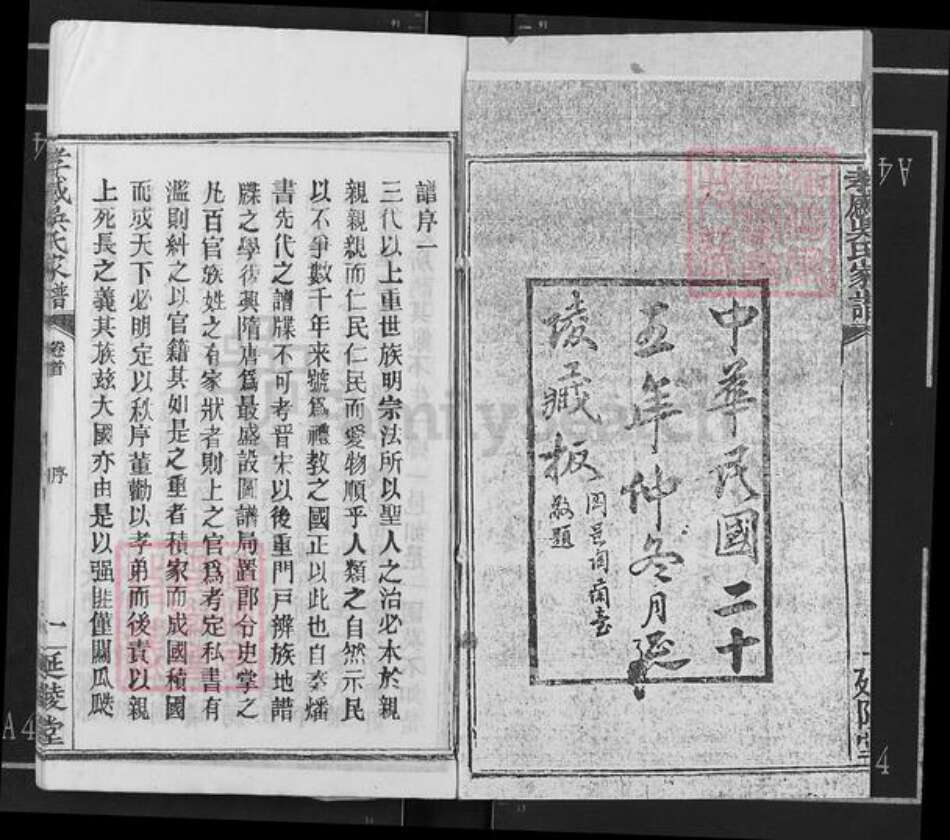 孝感吳氏家譜
中華民國二十
五年仲冬月延
陵藏板
敬題
延陵堂
譜序一
三代以上重世族明宗法所以聖人之治必本於親
親親親而仁民仁民而愛物順乎人類之自然示民
以不爭數千年來號爲禮教之國正以此也自秦燔
書先代之譜牒不可考晉宋以後重門戸辨族地譜
牒之學彼興隋唐爲最盛設圖譜局置郎令史掌之
凡百官族姓之有家狀者則上之官爲考定私書有
濫則糾之以官籍其如是之重者積家而成國積國
而成天下必明定以秩序董勸以孝弟而後責以親
上死長之義其族玆大國亦由是以强匪僅關瓜瓞
孝感吳氏家譜
卷首
序
一
延陵堂